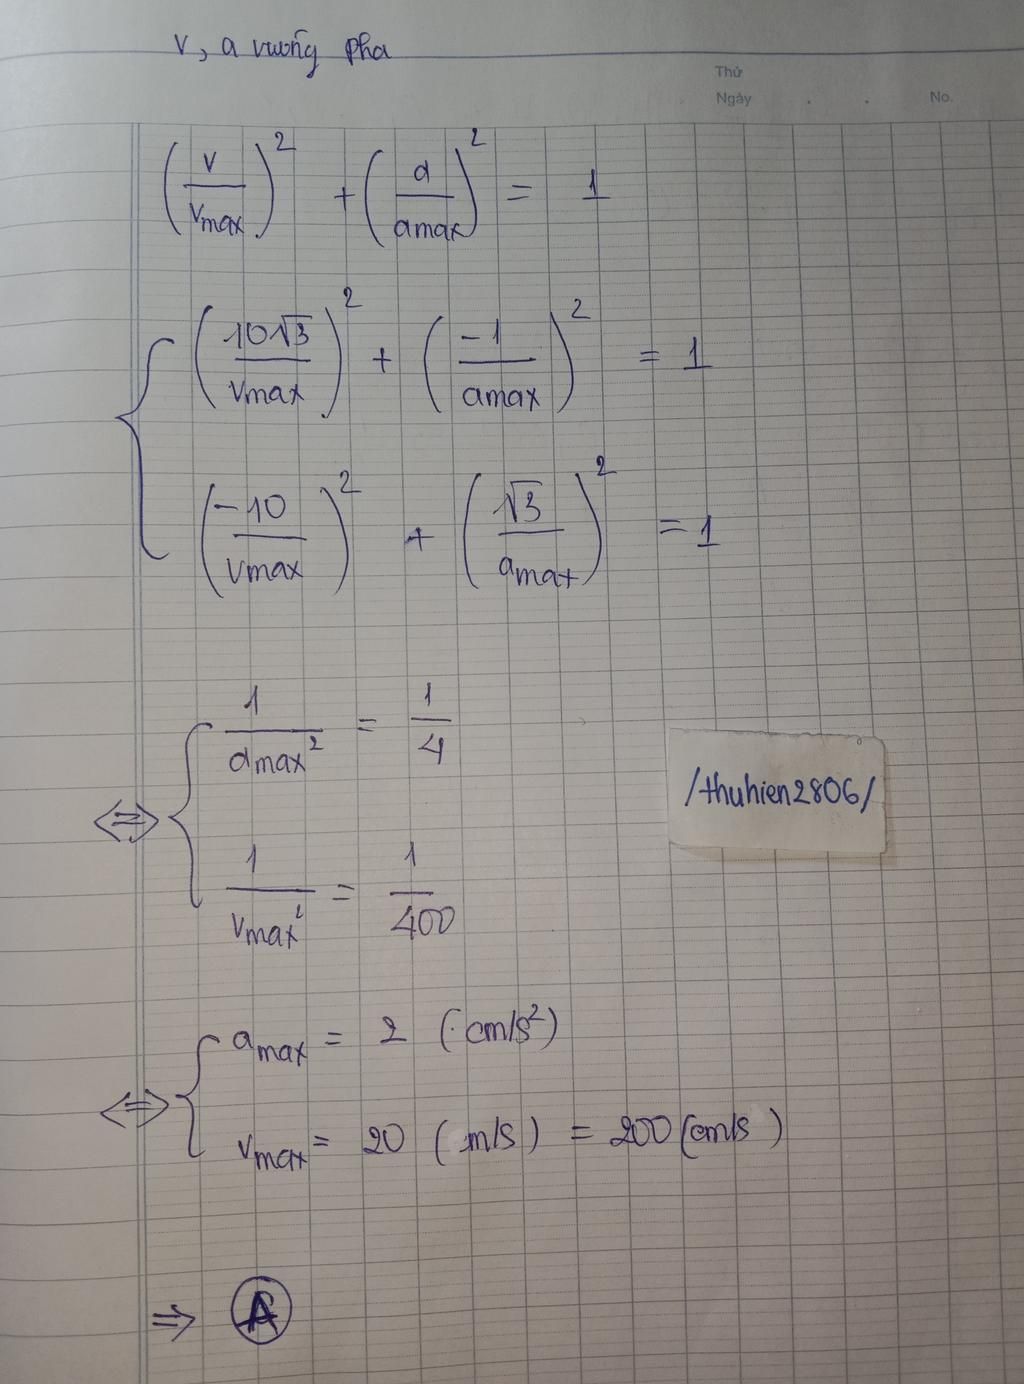 v, a vuông pha
Thứ
Ngày . . No.
(v/vmax)² + (a/amax)² = 1
(10√3/vmax)² + (-1/amax)² = 1
(-10/vmax)² + (√3/amax)² = 1
1/amax² = 1/4
/thuhien2806/
⇔
1/vmax² = 1/400
amax = 2 (cm/s²)
⇔
vmax = 20 (m/s) = 200 (cm/s)
⇒ A